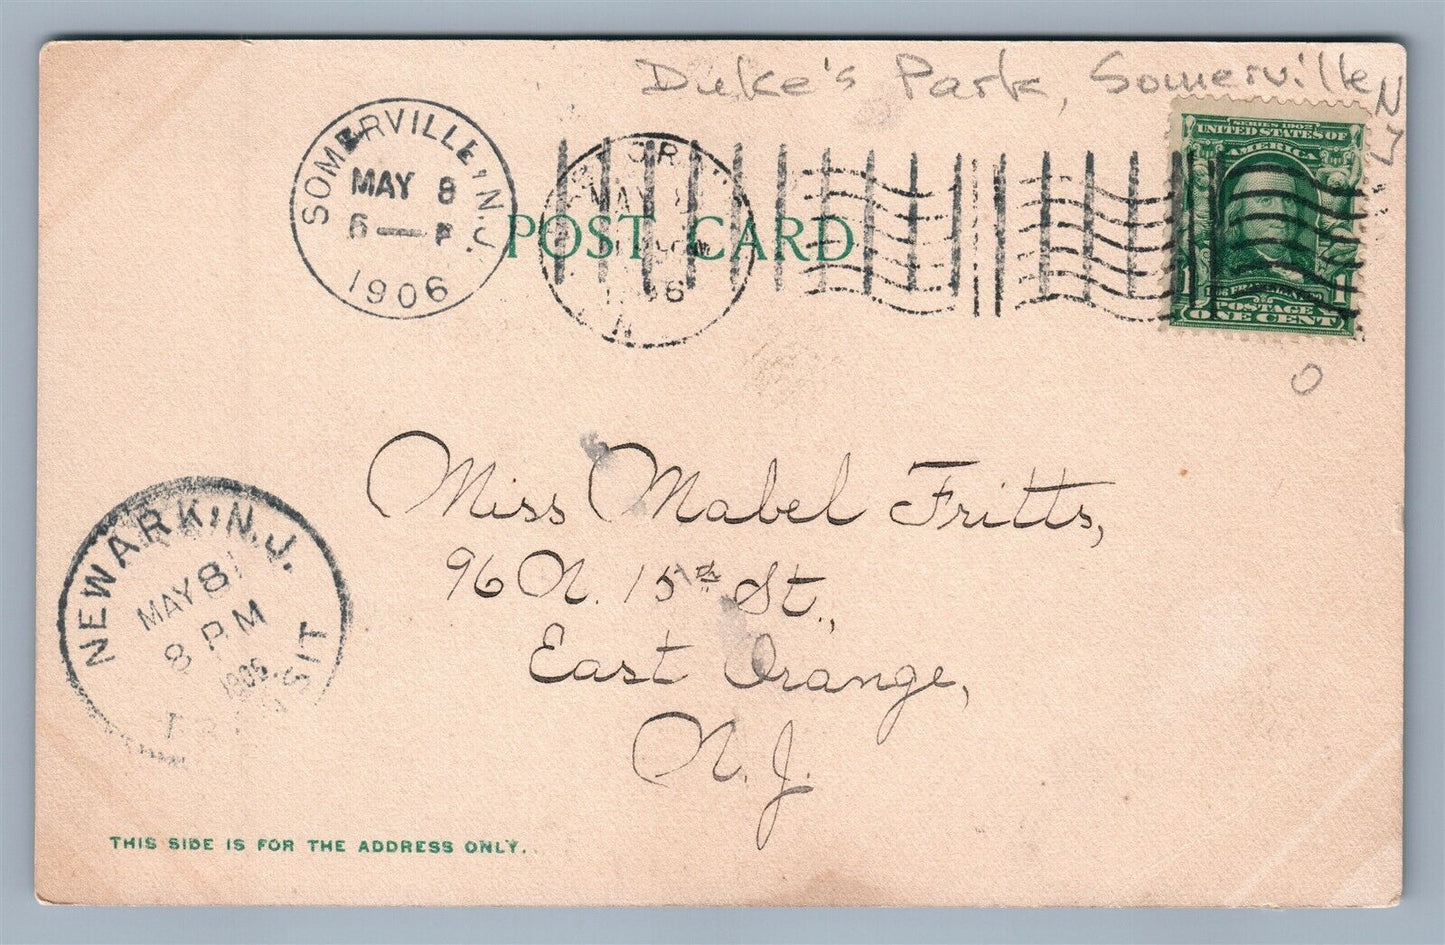 Duke's Park, Somerville NJ
SOMERVILLE, N.J.
MAY 8
6 — P
1906
MAY 8
POST CARD
SERIES 1902
UNITED STATES OF
AMERICA
1 1
POSTAGE
ONE CENT
O
Miss Mabel Fritts,
96 N. 15th St.,
East Orange,
N. J.
NEWARK, N.J.
MAY 8
8 PM
THIS SIDE IS FOR THE ADDRESS ONLY.